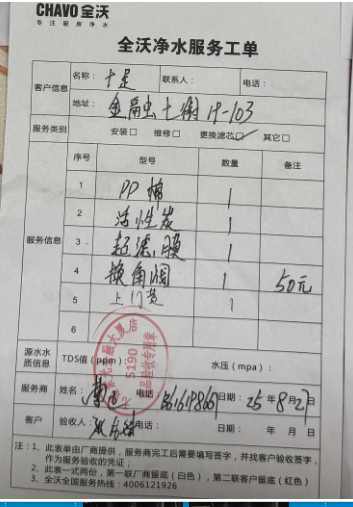 CHAVO 全沃
专 注 厨 房 净 水
全沃净水服务工单
客户信息 名称： 联系人： 电话：
地址： 金融 七树 19-103
服务类别 安装□ 维修□ 更换滤芯☑ 其它□
服务信息 序号 型号 数量 备注
1 PP棉 1
2 活性炭 1
3 超滤膜 1
4 换角阀 1 50元
5 上门费 1
6
源水水质信息 TDS值（ppm）： 水压（mpa）：
服务商 姓名： 电话 日期：25年8月27日
客户 验收人： 电话： 日期： 年 月 日
注：1、此表单由厂商提供，服务商完工后需要填写签字，并找客户验收签字，
作为服务验收的凭证；
2、此表一式两份，第一联厂商留底（白色），第二联客户留底（红色）
3、全沃全国服务热线：4006121926
5190
品验收专用章